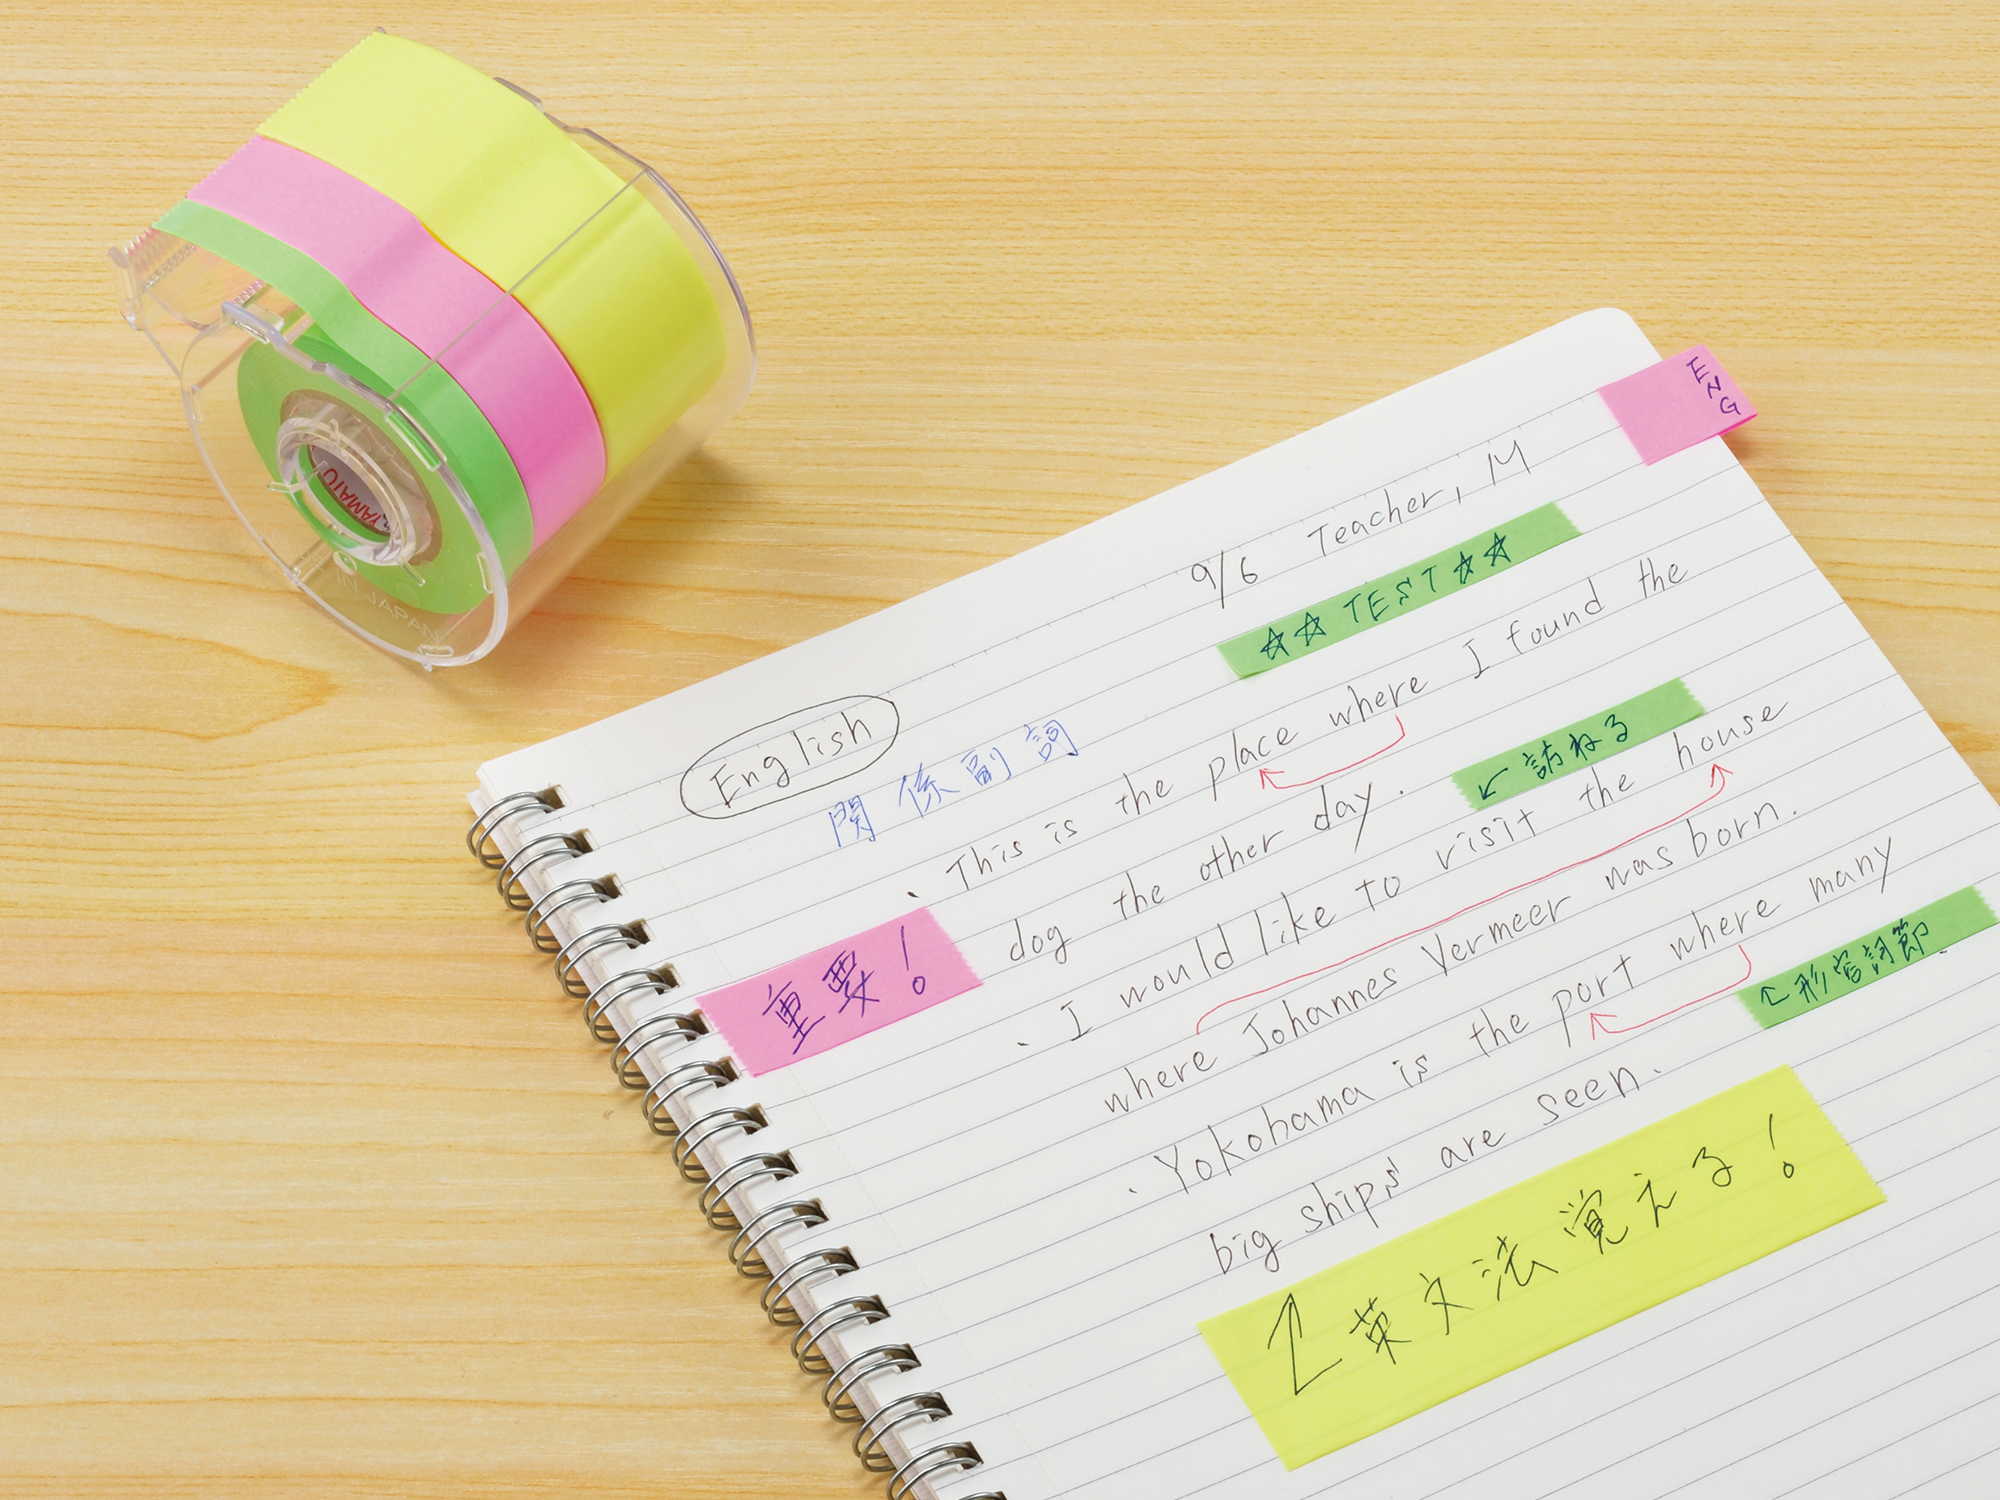 YAMATO
IN JAPAN
ENG
9/6 Teacher, M
English
☆☆ TEST ☆☆
関係副詞
・This is the place where I found the
dog the other day.
↙ 訪ねる
重要!
・I would like to visit the house
where Johannes Vermeer was born.
・Yokohama is the port where many
big ships are seen.
↖形容詞節
↑英文法覚える!